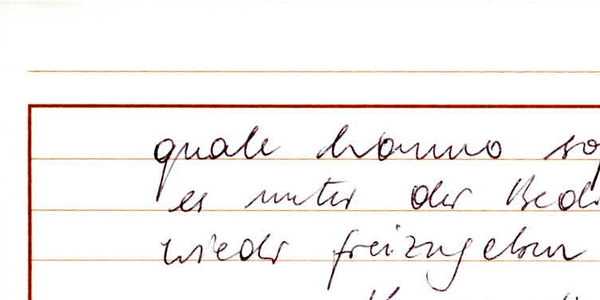 quale hanno so
es unter der Bed
wieder freizugeben